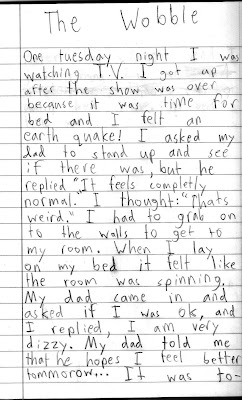 The Wobble
One tuesday night I was
watching T.V. I got up
after the show was over
because it was time for
bed and I felt an
earth quake! I asked my
dad to stand up and see
if there was, but he
replied "It feels completly
normal." I thought: "Thats
weird." I had to grab on
to the walls to get to
my room. When I lay
on my bed it felt like
the room was spinning.
My dad came in and
asked if I was ok, and
I replied, I am very
dizzy. My dad told me
that he hopes I feel better
tommorow... It was to-